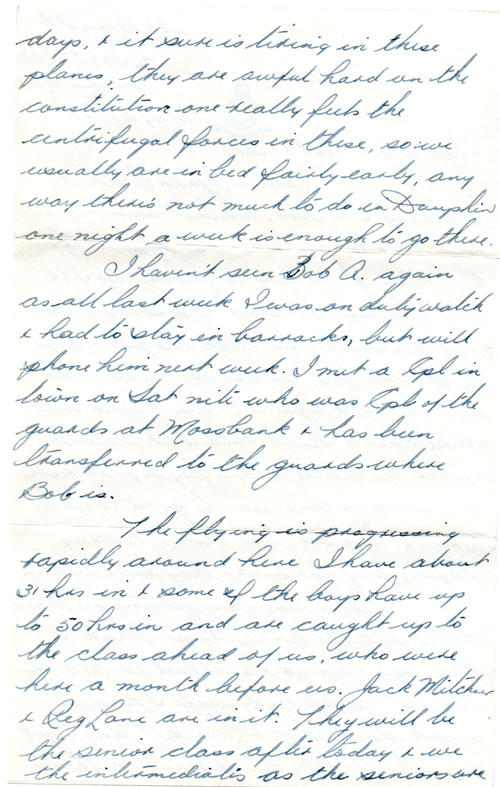 days, & it sure is tiring in these
planes, they are awful hard on the
constitution one really feels the
centrifugal forces in these, so we
usually are in bed fairly early, any
way there's not much to do in Dauphin
one night a week is enough to go there.
I haven't seen Bob A. again
as all last week I was on duty watch
& had to stay in barracks, but will
phone him next week. I met a Cpl in
town on Sat nite who was Cpl of the
guards at Mossbank & has been
transferred to the guards where
Bob is.
The flying is progressing
rapidly around here I have about
31 hrs in & some of the boys have up
to 50 hrs in and are caught up to
the class ahead of us, who were
here a month before us. Jack Mitchel
& Reg Lane are in it. They will be
the senior class after today & we
the intermediates as the seniors are